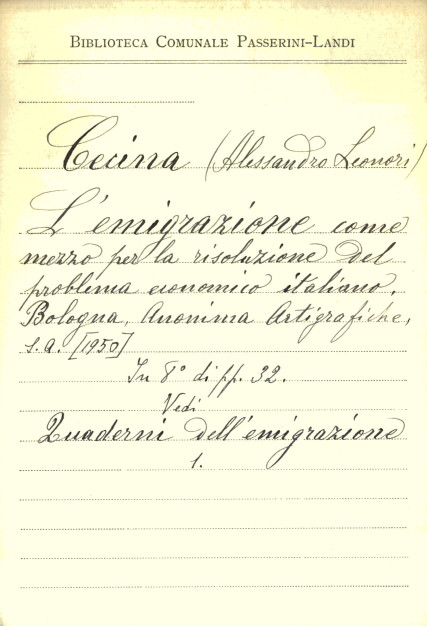 BIBLIOTECA COMUNALE PASSERINI-LANDI
Cecina (Alessandro Leonori)
L'emigrazione come
mezzo per la risoluzione del
problema economico italiano.
Bologna, Anonima Artigrafiche,
s.a. [1950]
In 8° di pp. 32.
Vedi
Quaderni dell'emigrazione
1.